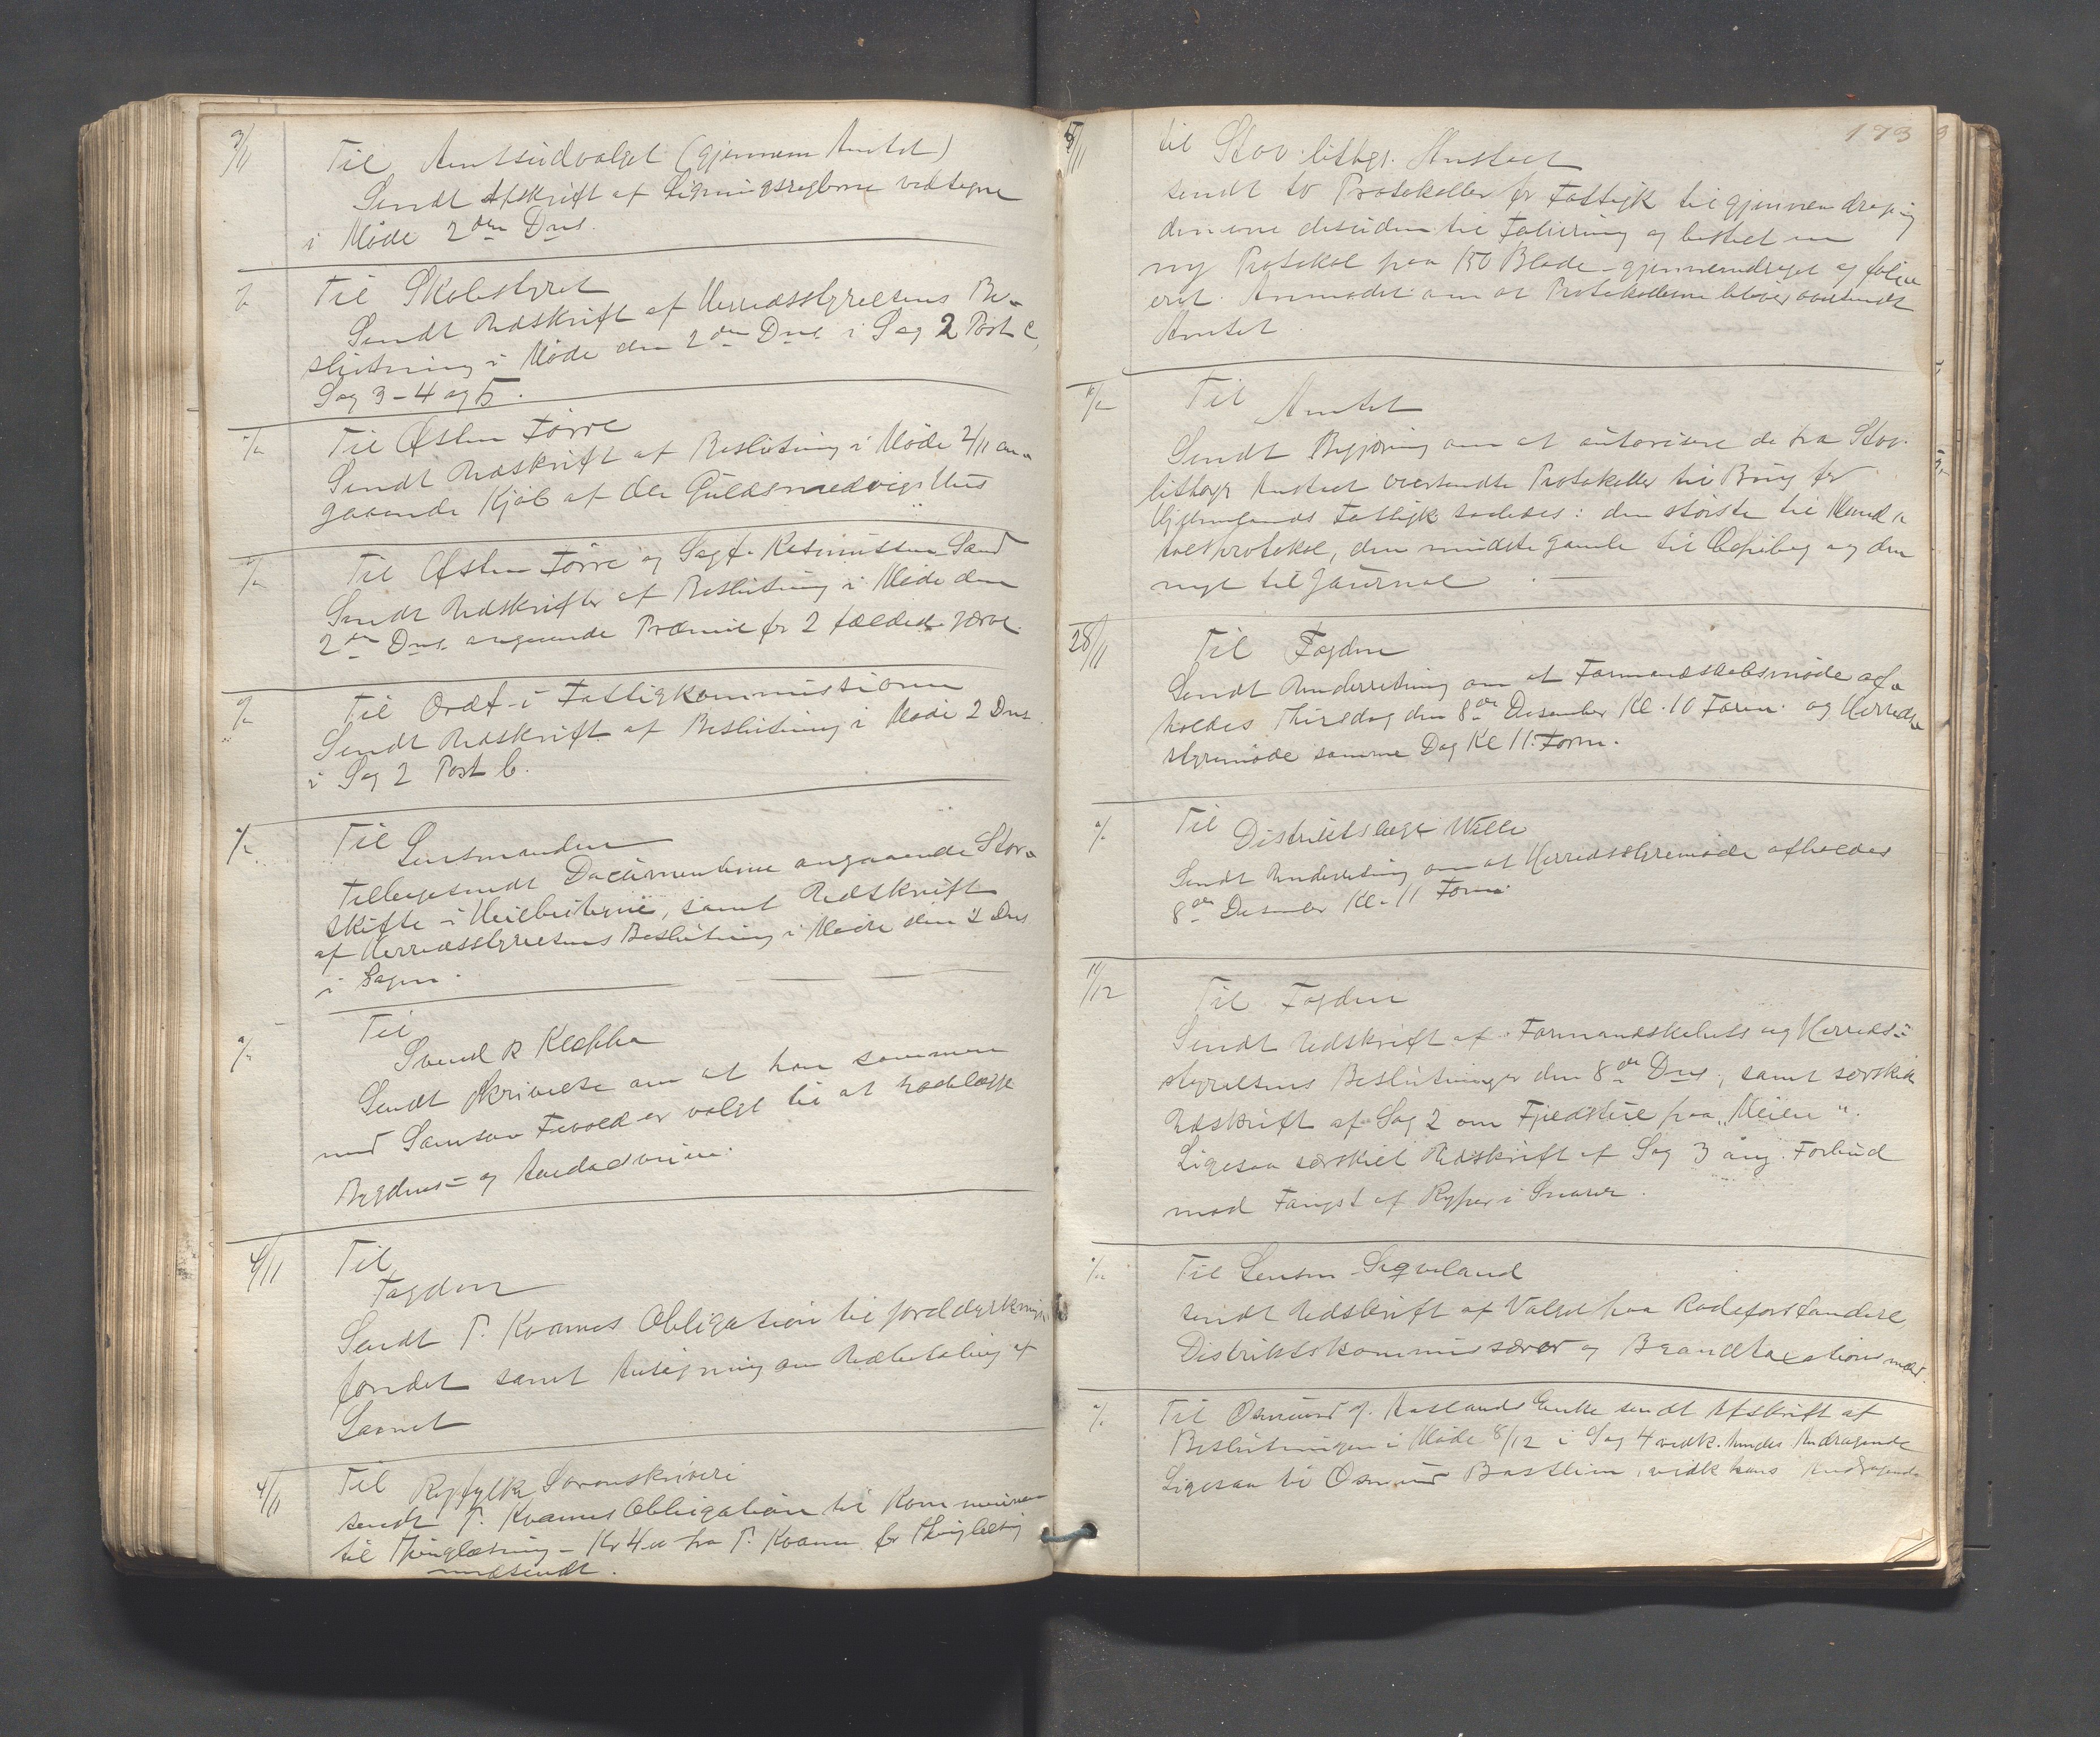 3/11
Til Amtsudvalget (gjennem Amtet)
Sendt Afskrift af Ligningsreglerne vedtagne
i Møde 2den Dns.
Til Skolestyret
Sendt Udskrift af Herredsstyrelsens Be-
slutning i Møde den 2den Dns. i Sag 2 Post c,
Sag 3 - 4 og 5.
Til Østen Førre
Sendt Udskrift af Beslutning i Møde 2/11 an-
gaaende Kjøb af Ole Guldsmedvigs Hus
Til Østen Førre og Sagf. Rasmussen Sand
Sendt Udskrifter af Beslutning i Møde den
2den Dns. angaaende Præmie for 2 fældede Jærve.
Til Ordf. i Fattigkommissionen
Sendt Udskrift af Beslutning i Møde 2 Dns.
i Sag 2 Post b.
Til Lensmanden
Tilbagesendt Documenterne angaaende Stor-
skifte i samt Udskrift
af Herredsstyrelsens Beslutning i Møde den 2 Dns
i Sagen.
Til
Svend R Kleppa
Sendt Skrivelse om at han sammen
med Samson Fevold er valgt til at
Bygdens- og
4/11
Til
Fogden
Sendt T. Kvames Obligation til Jorddyrknings
fondet samt Ansøgning om Udbetaling af
Laanet
4/11
Til Ryfylke Sorenskriveri
sendt T. Kvames Obligation til Kommunen
til Thinglæsning - Kr 4.00 fra T. Kvame for Thinglæsning
medsendt.
193
5/11
Til Stav. lithogr. Anstalt
sendt to Protokoller for Fattigk til gjennemdraging
den ene desuden til Foliering og bestilt en
ny Protokol paa 150 Blade - gjennemdraget og folie-
eret. Anmodet om at Protokollerne bliver oversendt
Amtet
Til Amtet
Sendt Begjæring om at autorisere de fra Stav.
lithogr Anstalt oversendte Protokoller til Brug for
Hjelmelands Fattigk saaledes: den største til Hand-
lsesprotokol, den mindste gamle til Copibog og den
nye til Journal.
28/11
Til Fogden
Sendt Underretning om at Formandskabsmøde af-
holdes Thirsdag den 8de Desember Kl. 10 Form. og Herreds-
styremøde samme Dag Kl 11. Form.
Til Distriktslæge Wille
Sendt Underretning om at Herredsstyremøde afholdes
8de Desember Kl. 11 Form.
11/12
Til Fogden
Sendt Udskrift af Formandskabets og Herreds-
styrelsens Beslutninger den 8de Dns., samt særskilt
Udskrift af Sag 2 om Fjeldstue paa "Heien".
Ligesaa særskilt Udskrift af Sag 3 ang. Forbud
mod Fangst af Ryper i Snarer.
Til Lensm. Sigveland
sendt Udskrift af Valget paa Rodeforstandere,
Distriktskommissærer og Brandtaxationsmænd.
Til Osmund J. Enke sendt Afskrift af
Beslutningen i Møde 8/12 i Sag 4 vedk. hendes Andragende
Ligesaa til Osmund Bastlien, vedk hans Andragende